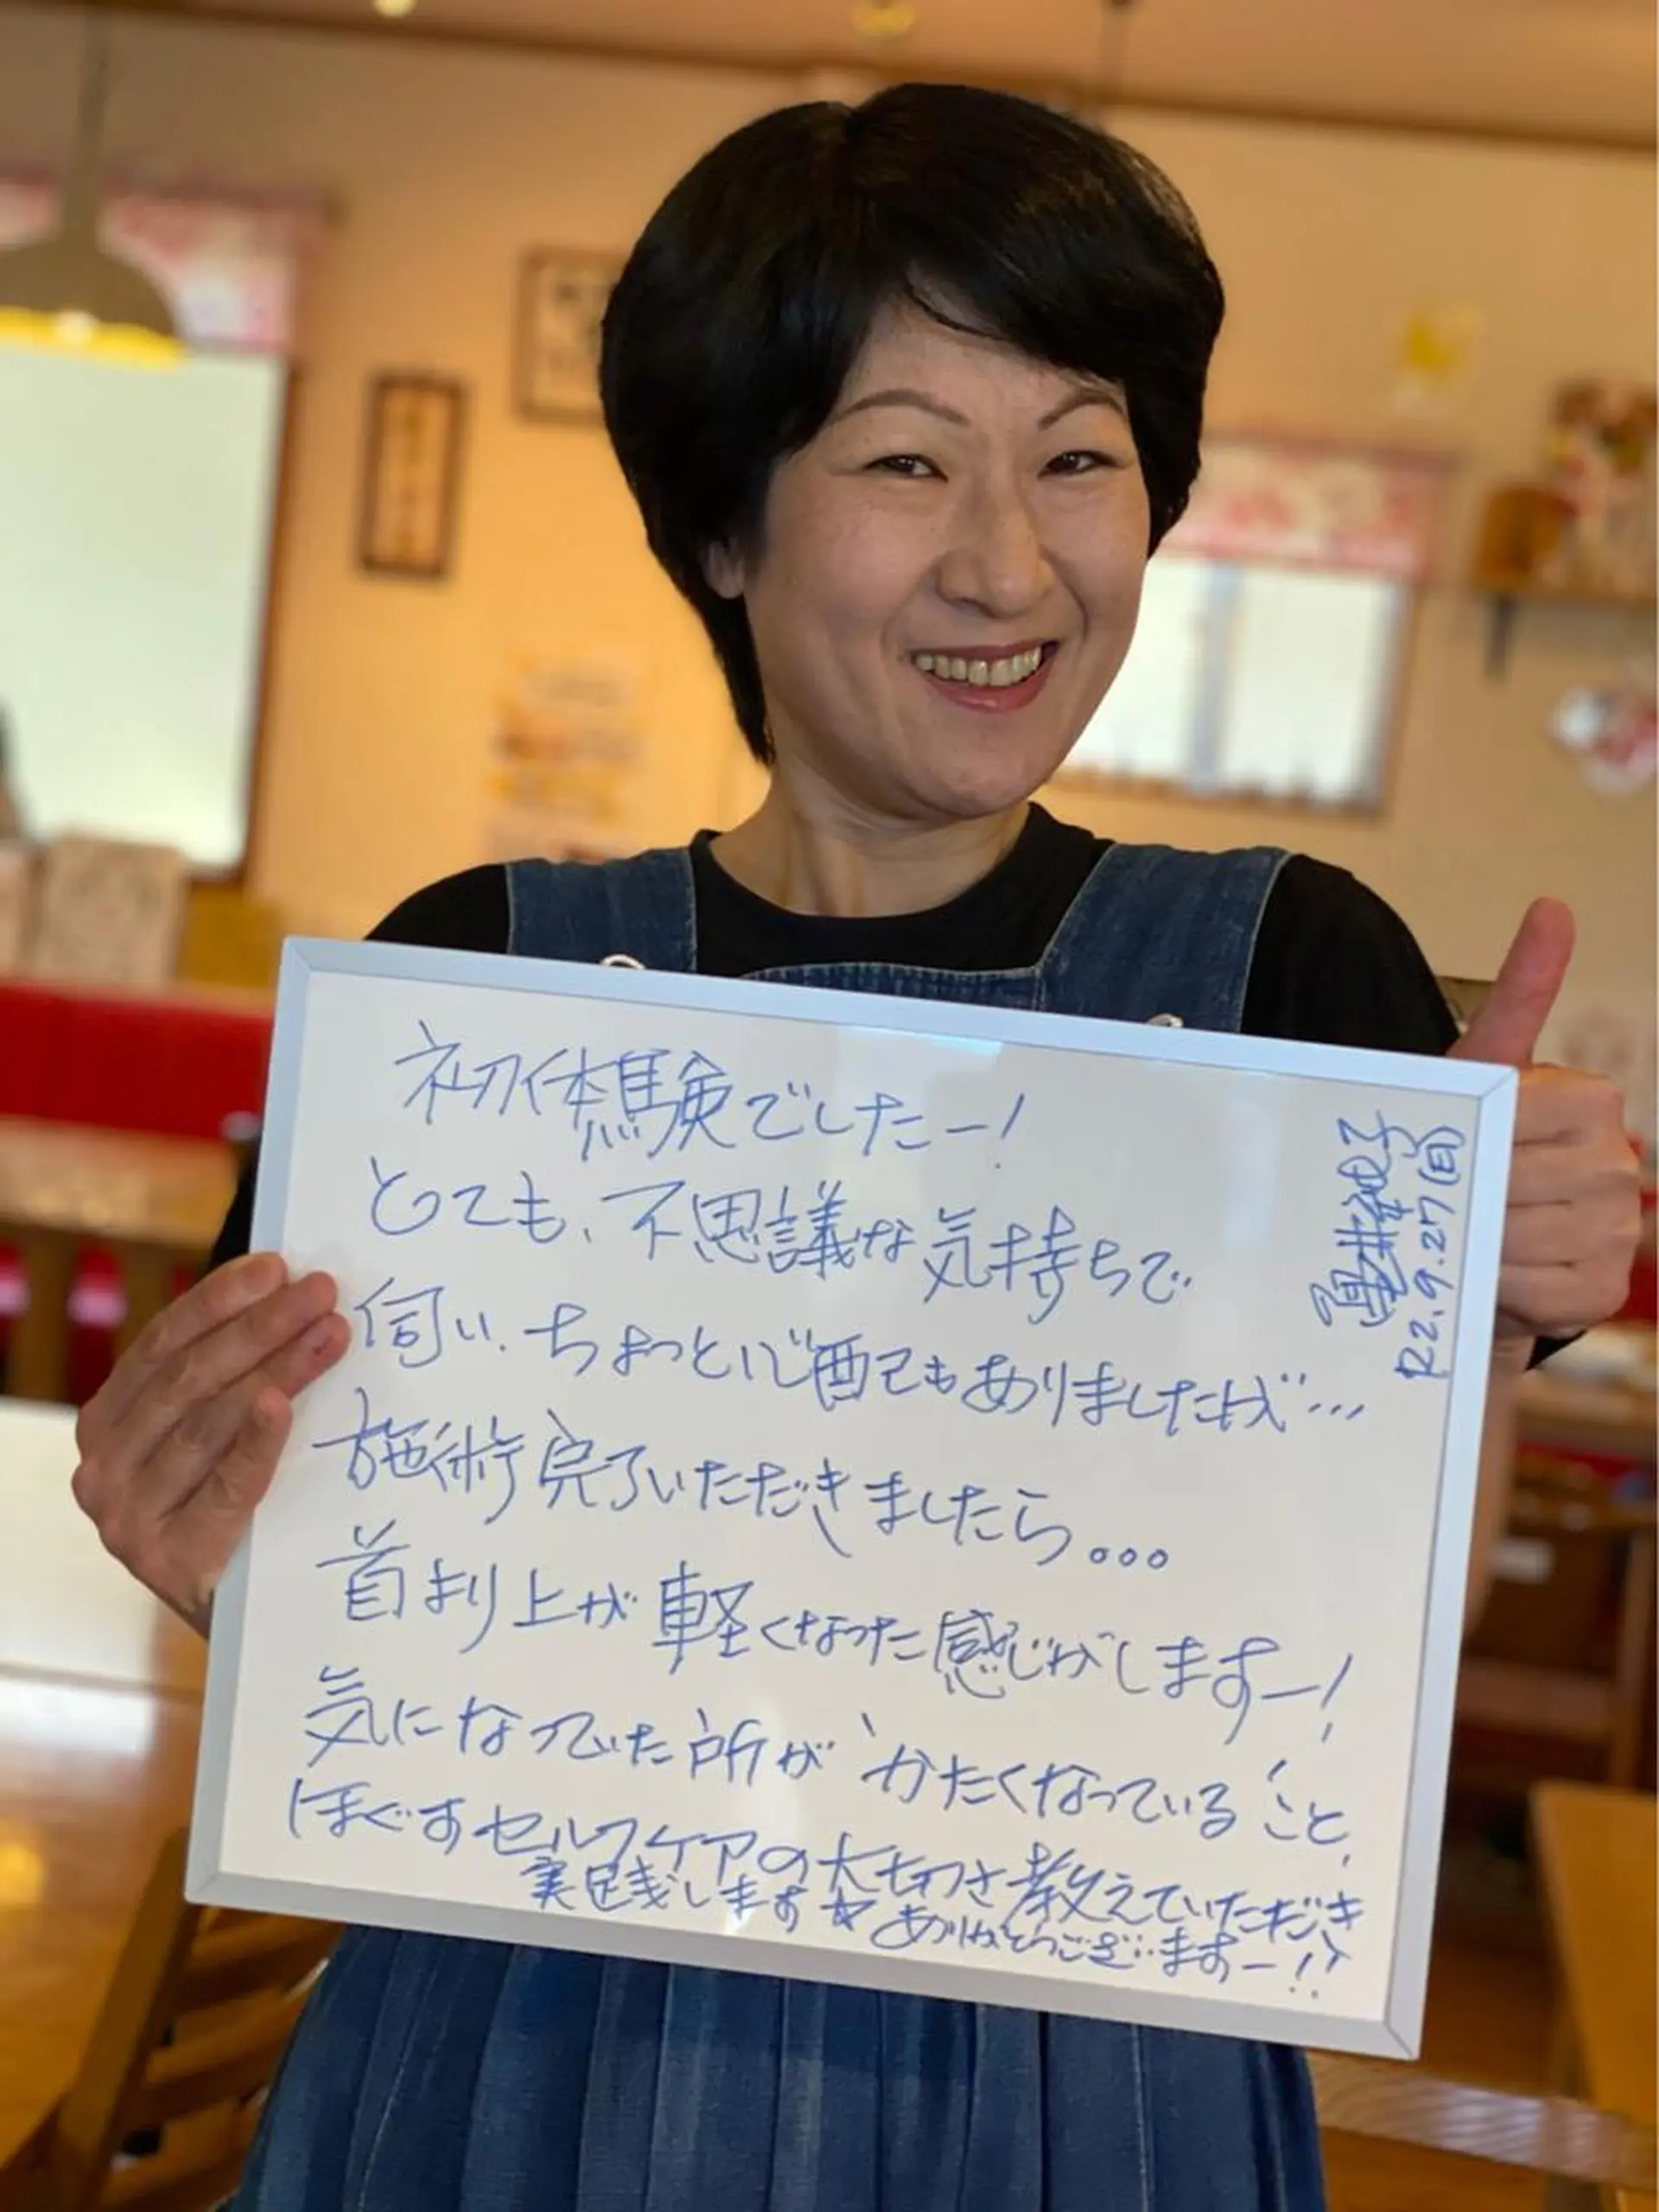 初体験でしたー!
とても、不思議な気持ちで
伺い、ちょっと心配もありましたけど…
施術完了いただきましたら。。。
首より上が軽くなった感じがしますー!
気になっていた所が"かたくなっている"こと、
ほぐすセルフケアの大切さ教えていただき
実践します☆ ありがとうございますー!!
R2.9.27(日)